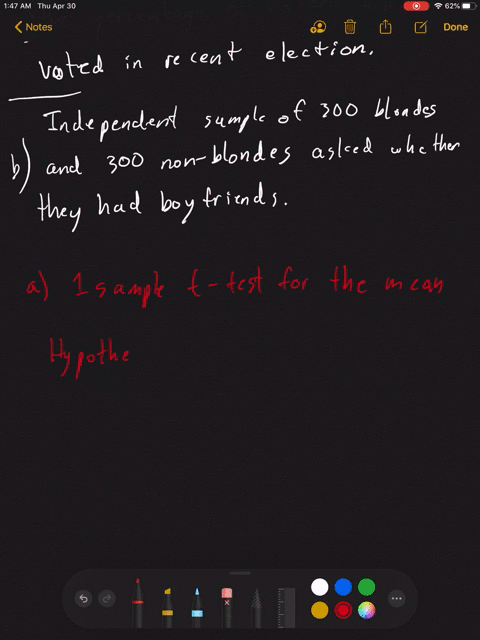 1:47 AM Thu Apr 30 62%
Notes Done
voted in recent election.
Independent sample of 300 blondes
b) and 300 non-blondes asked whether
they had boyfriends.
a) 1 sample t-test for the mean
Hypothe